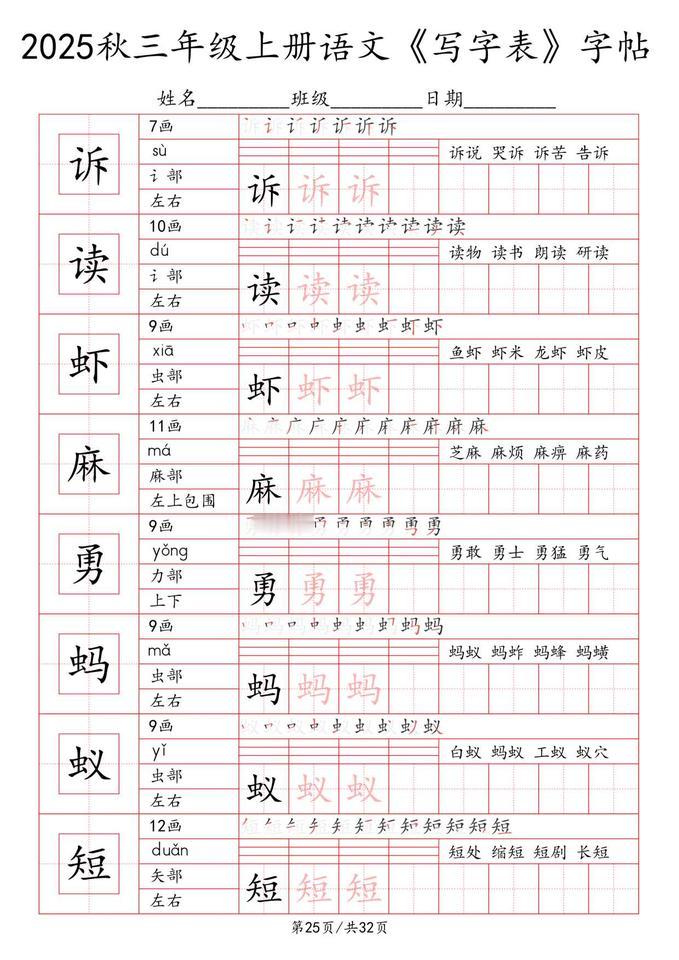 2025秋三年级上册语文《写字表》字帖
姓名_________班级_________日期_________
诉
7画
诉说 哭诉 诉苦 告诉
sù
讠部
左右
诉 诉 诉
读
10画
dú
读物 读书 朗读 研读
讠部
左右
读 读 读
虾
9画
xiā
鱼虾 虾米 龙虾 虾皮
虫部
左右
虾 虾 虾
麻
11画
má
芝麻 麻烦 麻痹 麻药
麻部
左上包围
麻 麻 麻
勇
9画
yǒng
勇敢 勇士 勇猛 勇气
力部
上下
勇 勇 勇
蚂
9画
mǎ
蚂蚁 蚂蚱 蚂蜂 蚂蟥
虫部
左右
蚂 蚂 蚂
蚁
9画
yǐ
白蚁 蚂蚁 工蚁 蚁穴
虫部
左右
蚁 蚁 蚁
短
12画
duǎn
短处 缩短 短剧 长短
矢部
左右
短 短 短
第25页/共32页